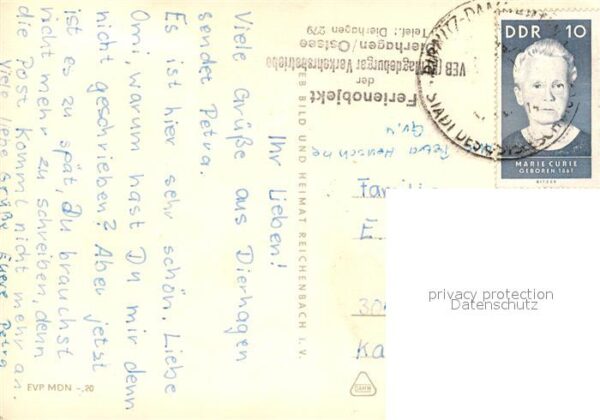 Ihr Lieben!
Viele Grüße aus Dierhagen
sendet Petra.
Es ist hier sehr schön. Liebe
Omi warum hast Du mir denn
nicht geschrieben? Aber jetzt
ist es zu spät, Du brauchst
nicht mehr zu schreiben, denn
die Post kommt nicht mehr an.
Viele liebe Grüße Eure Petra
EVP MDN -,20
VEB BILD UND HEIMAT REICHENBACH I. V.
Ferienobjekt
der
VEB Magdeburger Verkehrsbetriebe
Dierhagen/Ostsee
Telef.: Dierhagen 279
Petra
Familie
E
30
Ka
DDR 10
MARIE CURIE
GEBOREN 1867
RIBNITZ-DAMGARTEN
STADT DES
privacy protection
Datenschutz